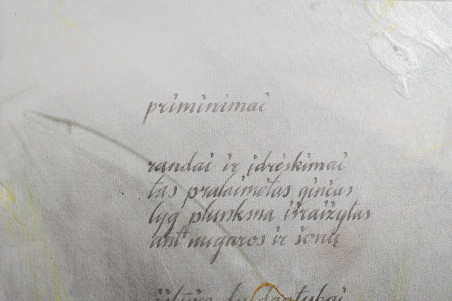 priminimai
randai ir įdrėskimai
tas pralaimėtas ginčas
lyg plunksna išraižytas
ant nugaros ir šonų